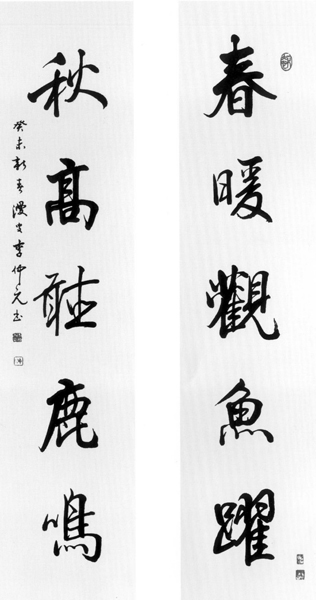 春暖觀魚躍
秋高聽鹿鳴
癸未新春漫叟李仲元書